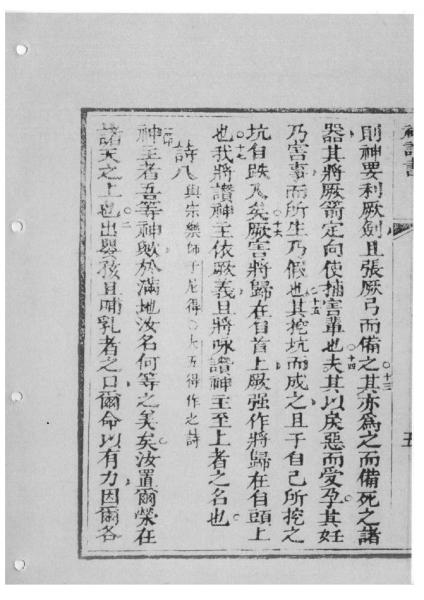 神詩書
五
則神要利厥劍且張厥弓而備之○十三其亦為之而備死之諸
器其將厥箭定向使捕害輩也○十四夫其以戾惡而受孕其妊
乃害事而所生乃假也○十五其挖坑而成之且于自己所挖之
坑自跌入矣○十六厥害將歸在自首上厥强作將歸在自頭上
也○十七我將讚神主依厥義且將咏讚神主至上者之名也
詩八 與宗樂師于尼得○大五得作之詩
神主者吾等神歟於滿地汝名何等之美矣汝置爾榮在
諸天之上也○二出嬰孩且哺乳者之口爾命以有力因爾各